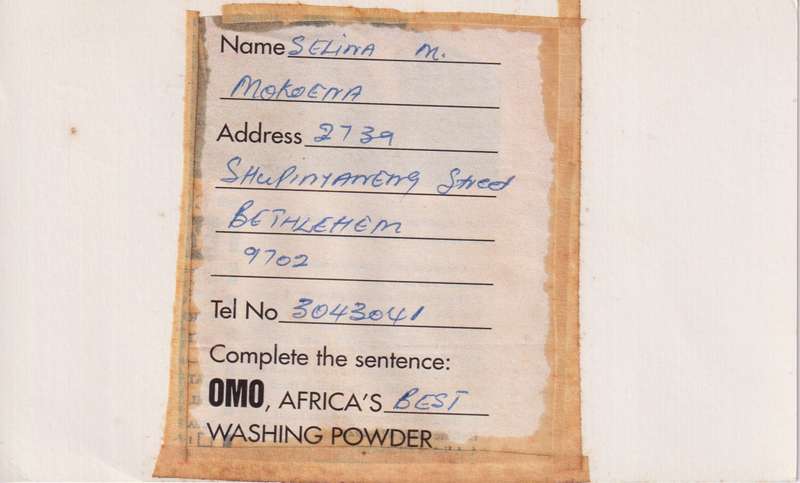 Name SELINA M.
MOKOENA
Address 2739
SHUPINYANENG Street
BETHLEHEM
9702
Tel No 3043041
Complete the sentence:
OMO, AFRICA'S BEST
WASHING POWDER